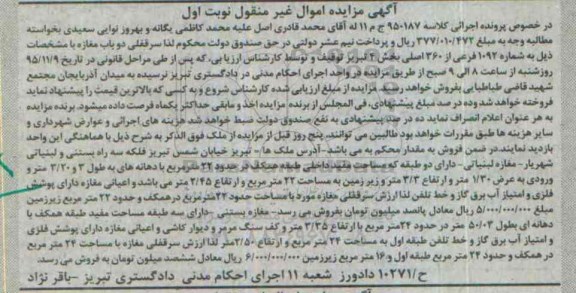 آگهی مزایده اموال غیر منقول نوبت اول
در خصوص پرونده اجرائی کلاسه ۹۵۰۱۸۷ ج م ۱۱ له آقای محمد قادری اصل علیه محمد کاظمی یگانه و بهروز نوایی سعیدی بخواسته
مطالبه وجه به مبلغ ۳۷۷/۰۱۰/۴۷۲ ریال و پرداخت نیم عشر دولتی در حق صندوق دولت محکوم لذا سرقفلی دو باب مغازه با مشخصات
ذیل به شماره ۱۰۹۲ فرعی از ۳۶۰ اصلی بخش ۲ تبریز توقیف و توسط کارشناس ارزیابی، که پس از طی مراحل قانونی در تاریخ ۹۵/۱۱/۹
روز شنبه از ساعت ۸ الی ۹ صبح از طریق مزایده در واحد اجرای احکام مدنی در دادگستری تبریز نرسیده به میدان آذربایجان مجتمع
شهید قاضی طباطبایی بفروش خواهد رسید. مزایده از مبلغ ارزیابی شده کارشناس شروع و به کسی که بالاترین قیمت را پیشنهاد نماید
فروخته خواهد شد و ده در صد مبلغ پیشنهادی، فی المجلس از برنده مزایده اخذ و مابقی حداکثر یکماه فرصت داده میشود. برنده مزایده
به هر عنوان اعلام انصراف نماید ده در صد پیشنهادی به نفع صندوق دولت ضبط خواهد شد هزینه های اجرائی و عوارض شهرداری و
سایر هزینه ها طبق مقررات خواهد بود طالبین می توانند، پنج روز قبل از مزایده از ملک فوق الذکر به شرح ذیل با هماهنگی این واحد
بازدید نمایند. در ضمن فروش به مقدار محکوم به می باشد- آدرس ملک ها – تبریز خیابان شمس تبریز فلکه سه راه بستنی و لبنیاتی
شهریار – مغازه لبنیاتی – دارای دو طبقه که مساحت مفید داخلی طبقه همکف در حدود ۲۴ مترمربع با دهانه های به طول ۳ و ۳/۲۰ متر و
ورودی به عرض ۱/۳۰ متر و ارتفاع ۳/۳ متر و زیر زمین به مساحت ۲۲ متر مربع و ارتفاع ۲/۴۵ متر می باشد و اعیانی مغازه دارای پوشش
فلزی و امتیاز آب برق گاز و خط تلفن لذا ارزش سرقفلی مغازه مورد با مساحت حدود ۲۴ مترمربع در همکف و حدود ۲۲ متر مربع زیرزمین
مبلغ ۵/۰۰۰/۰۰۰/۰۰۰ ریال معادل پانصد میلیون تومان بفروش می رسد- مغازه بستنی -دارای سه طبقه مساحت مفید طبقه همکف با
دهانه ای بطول ۵۰/۰۳ متر در حدود ۲۴متر مربع با ارتفاع ۳/۳۵ متر و کف سنگ مرمر و دیوار کاشی و اعیانی مغازه دارای پوشش فلزی
و امتیاز آب برق گاز و خط تلفن طبقه اول به مساحت ۲۴ متر مربع و ارتفاع ۲/۵۰متر لذا ارزش سرقفلی مغازه با مساحت ۲۴ متر مربع
در همکف و حدود ۲۴ متر مربع طبقه اول و ۱۶ متر مربع زیرزمین ۶/۰۰۰/۰۰۰/۰۰۰ ریال معادل ششصد میلیون تومان به فروش می رسد.
ح/۱۰۲۷۱ دادورز شعبه ۱۱ اجرای احکام مدنی دادگستری تبریز –باقر نژاد